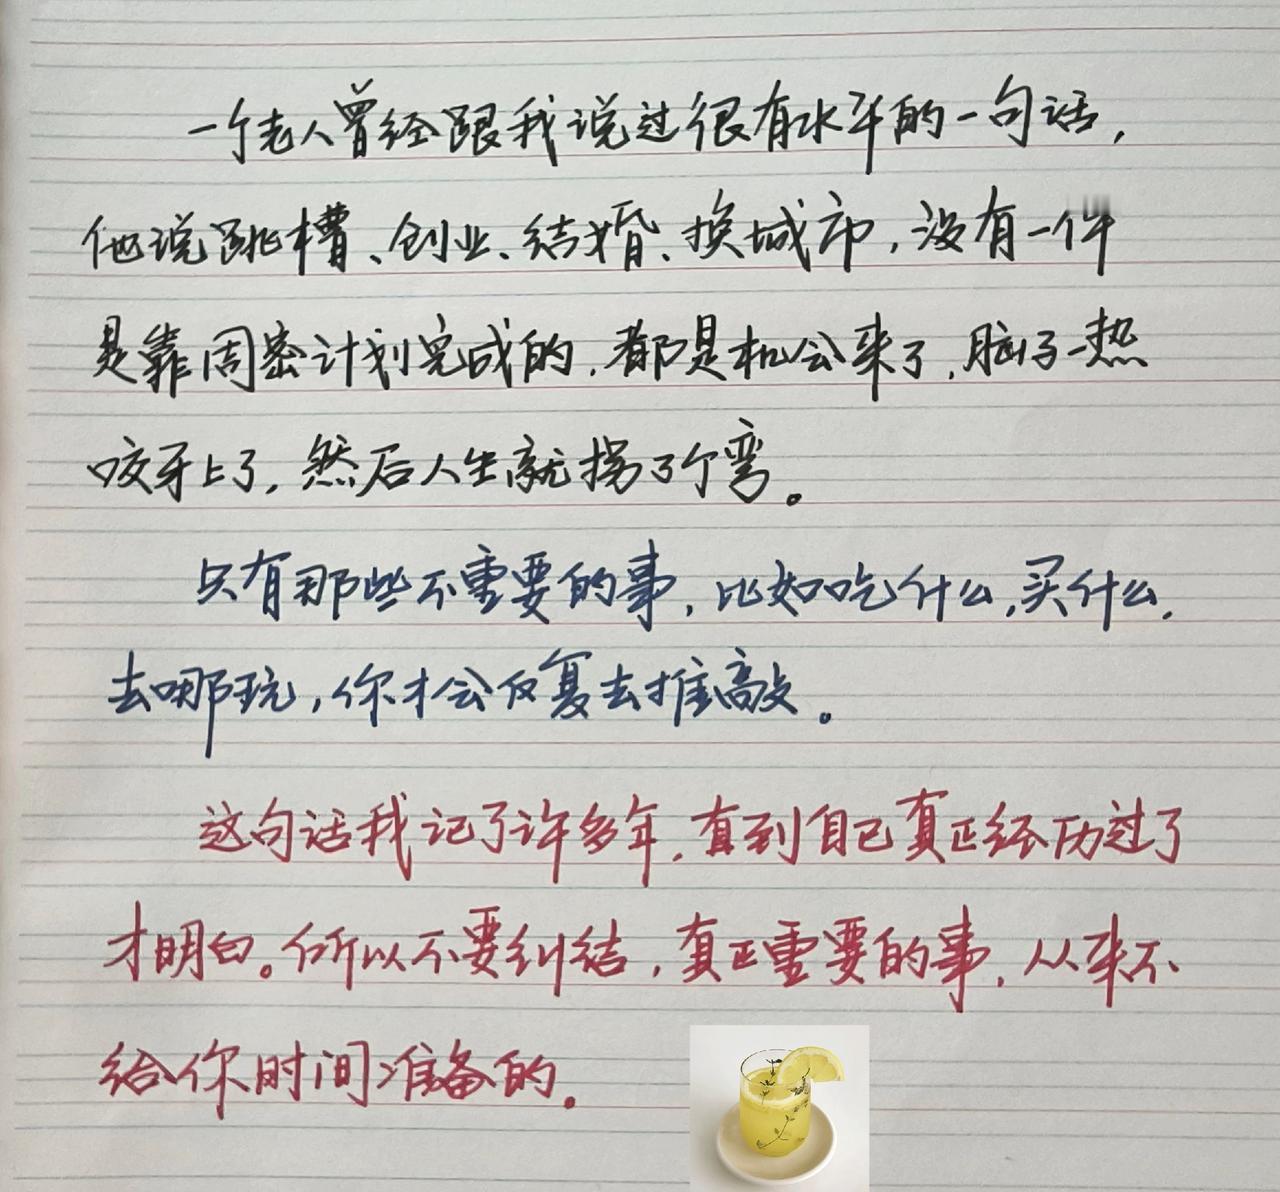 一个老人曾经跟我说过很有水平的一句话，
他说跳槽、创业、结婚、换城市，没有一件
是靠周密计划完成的，都是机会来了，脑子一热
咬牙上了，然后人生就拐了个弯。
只有那些不重要的事，比如吃什么，买什么，
去哪玩，你才会反复去推敲。
这句话我记了许多年，直到自己真正经历过了
才明白。所以不要纠结，真正重要的事，从来不
给你时间准备的。